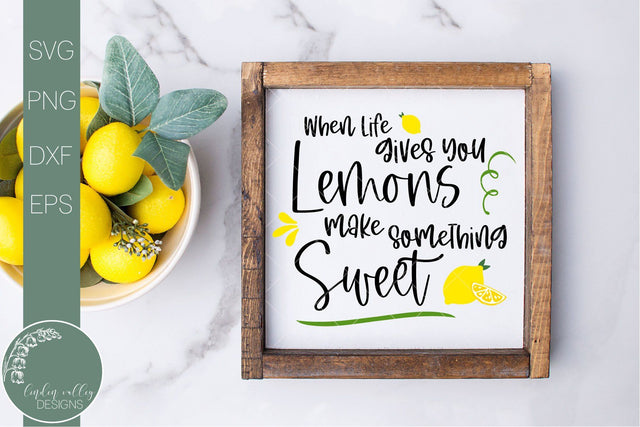 SVG
PNG
DXF
EPS
When Life
gives you
Lemons
make something
Sweet
linden valley
DESIGNS